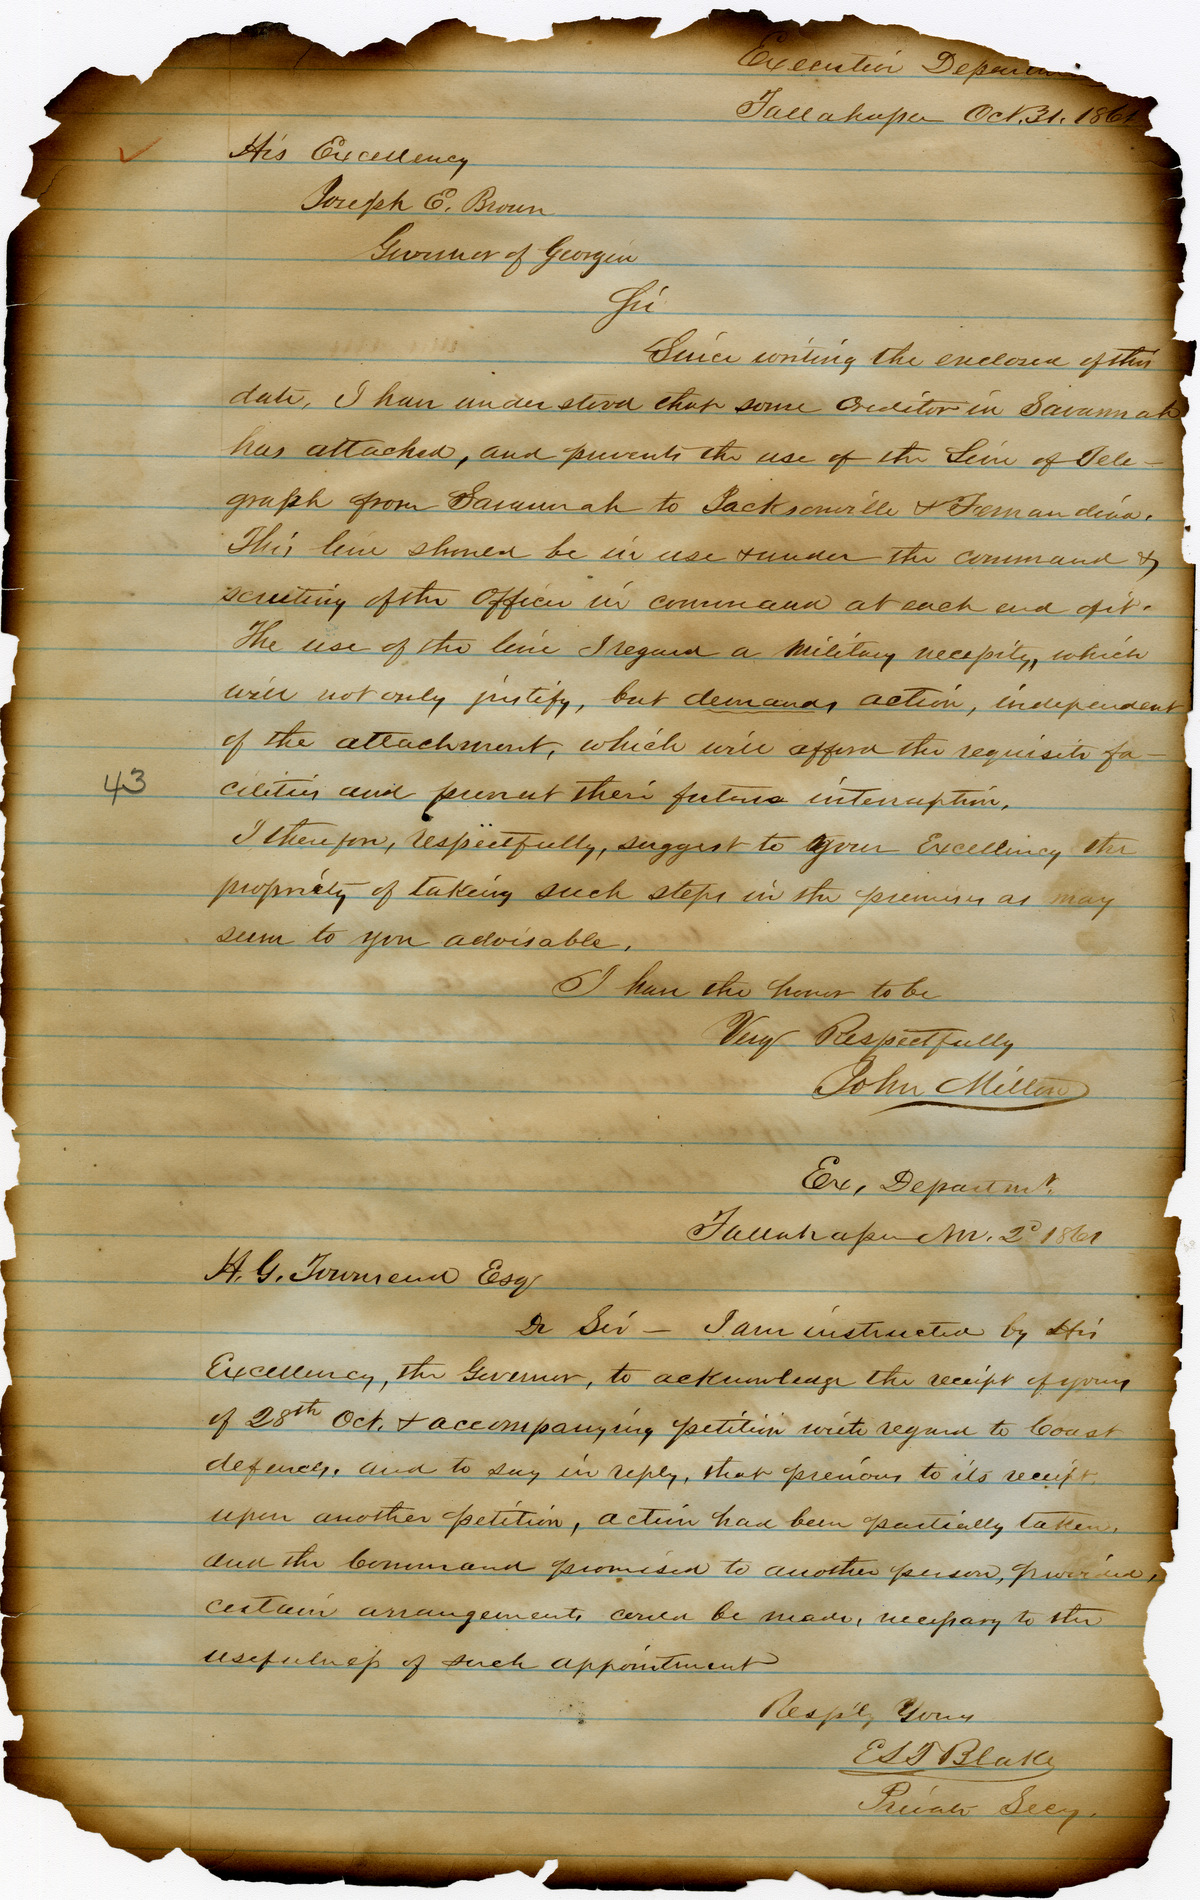 Executive Department
Tallahassee Oct. 31. 1861
His Excellency
Joseph E. Brown
Governor of Georgia
Sir
Since writing the enclosed of this
date, I have understood that some Creditor in Savannah
has attached, and prevents the use of the Line of Tele-
graph from Savannah to Jacksonville & Fernandina.
This line should be in use & under the command &
scrutiny of the Officer in command at each end of it.
The use of the line I regard a Military necessity, which
will not only justify, but demands action, independent
of the attachment, which will afford the requisite fa-
cilities and prevent their future interruption.
I therefore, respectfully, suggest to your Excellency the
propriety of taking such steps in the premises as may
seem to you advisable.
I have the honor to be
Very Respectfully
John Milton
43
Ex. Departmt.
Tallahassee Nov. 2d 1861
H. G. Townsend Esq
Dr Sir — I am instructed by His
Excellency, the Governor, to acknowledge the receipt of yours
of 28th Oct. & accompanying petition with regard to Coast
defences. and to say in reply, that previous to its receipt,
upon another petition, action had been partially taken,
and the Command promised to another person, provided,
certain arrangements could be made, necessary to the
usefulness of such appointment
Resp'ly Yours
Private Secy.